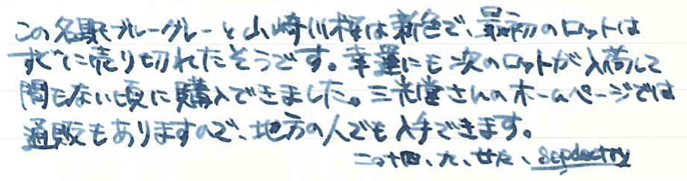 この名駅ブルーグレーと山崎川桜は新色で、最初のロットは
すぐに売り切れたそうです。幸運にも次のロットが入荷して
間もない頃に購入できました。三光堂さんのホームページでは
通販もありますので、地方の人でも入手できます。
二〇十四、九、廿九、